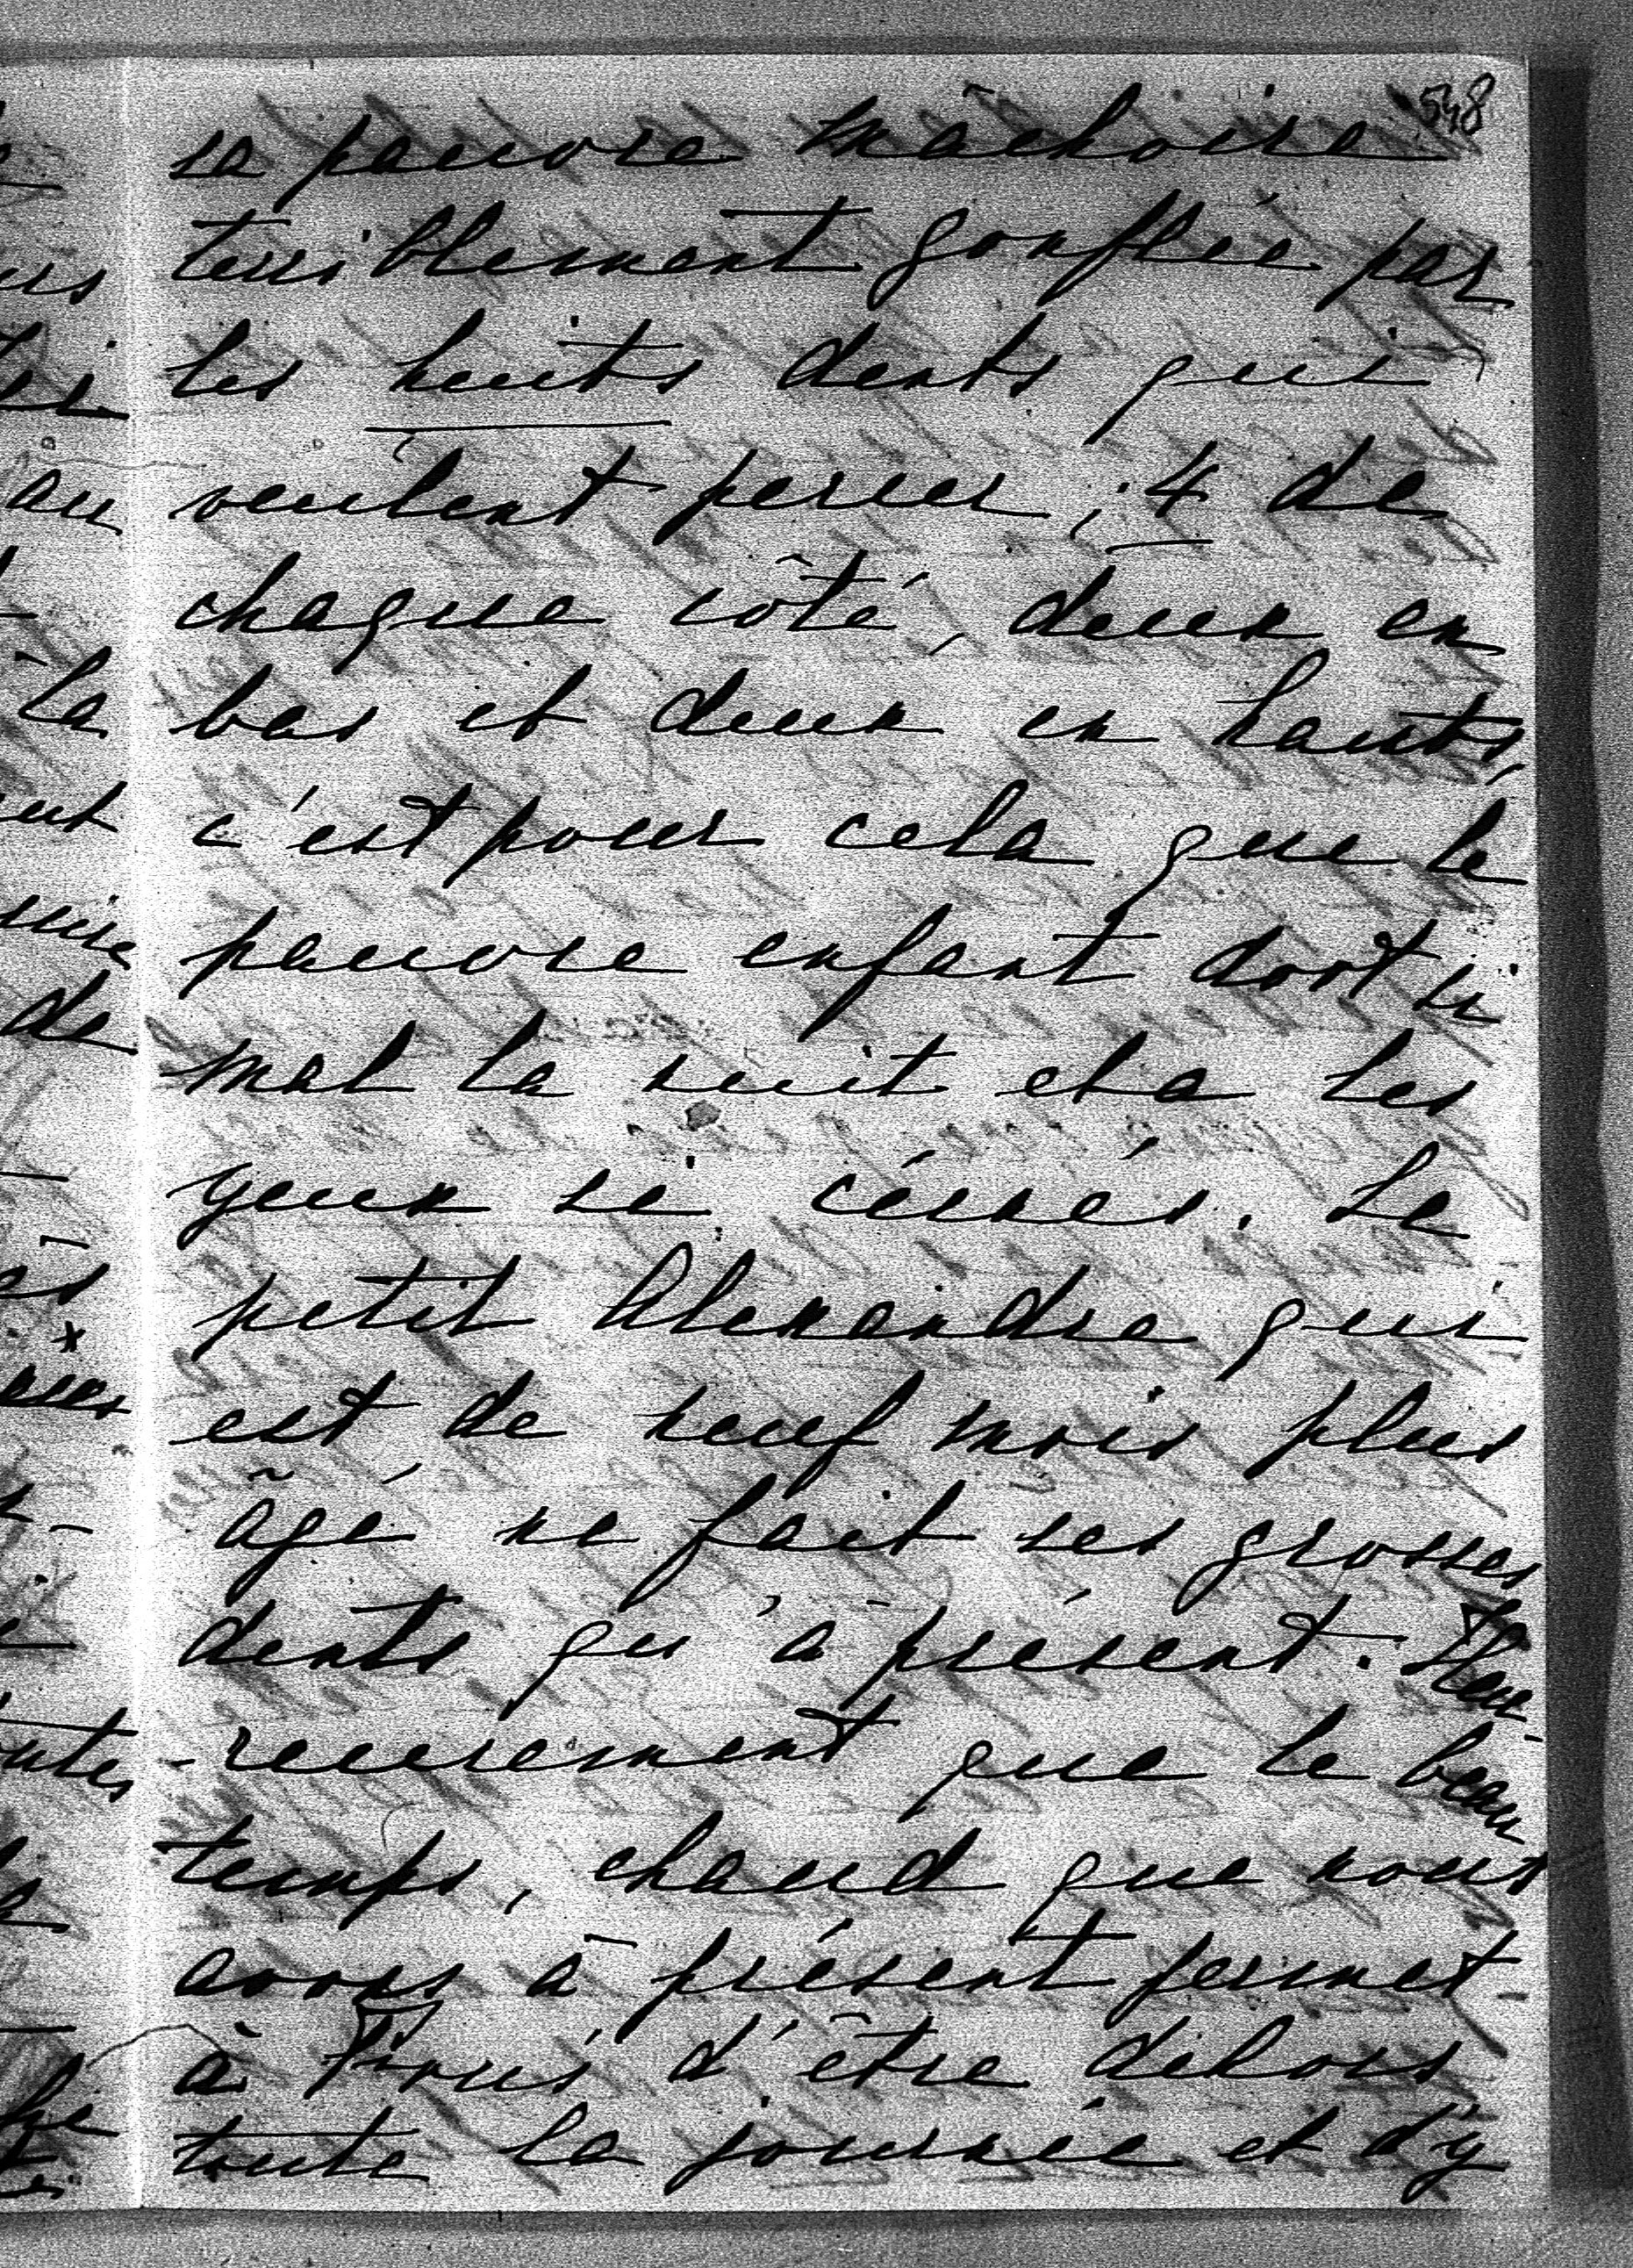 548
sa pauvre mâchoire
terriblement gonflée par
les huits dents qui
veulent percer; 4 de
chaque côté, deux en
bas et deux en hauts,
c'est pour cela que le
pauvre enfant dort si
mal la nuit et a les
yeux si cérnés. Le
petit Alexandre qui
est de neuf mois plus
âgé ne fait ses grosses
dents qu'à présent. Heu-
-reusement que le beau
temps, chaud que nous
avons à présent permet
à d'être dehors
toute la journée et d'y